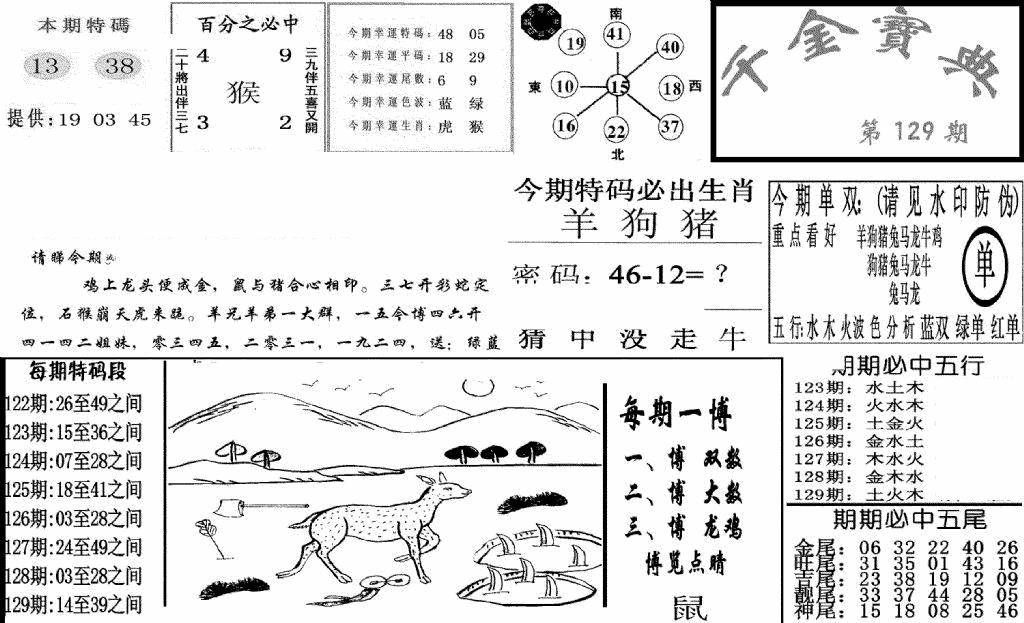 本期特碼
13 38
提供:19 03 45
百分之必中
二十將出伴三七
4 9
猴
3 2
三九伴五喜又開
今期幸運特碼: 48 05
今期幸運平碼: 18 29
今期幸運尾數: 6 9
今期幸運色波: 蓝 绿
今期幸運生肖: 虎 猴
南
19 41 40
東 10 15 18 西
16 22 37
北
千金寶典
第129期
请睇今期
鸡上龙头便成金，鼠与猪合心相印。三七开彩蛇定
位，石猴崩天虎来临。羊兄羊弟一大群，一五今博四六开
四一四二姐妹，零三四五，二零三一，一九二四，送：绿蓝
今期特码必出生肖
羊 狗 猪
密码：46-12=？
猜中没走牛
今期单双:(请见水印防伪)
重点看好 羊狗猪兔马龙牛鸡
狗猪兔马龙牛
兔马龙
单
五行:水木火波色分析 蓝双 绿单 红单
每期特码段
122期:26至49之间
123期:15至36之间
124期:07至28之间
125期:18至41之间
126期:03至28之间
127期:24至49之间
128期:03至28之间
129期:14至39之间
每期一博
一、博 双数
二、博 大数
三、博 龙鸡
博览点睛
鼠
期期必中五行
123期：水土木
124期：火水木
125期：土金火
126期：金水土
127期：木水火
128期：金木水
129期：土火木
期期必中五尾
金尾：06 32 22 40 26
旺尾：31 35 01 43 16
吉尾：23 38 19 12 09
靓尾：33 37 44 28 05
神尾：15 18 08 25 46